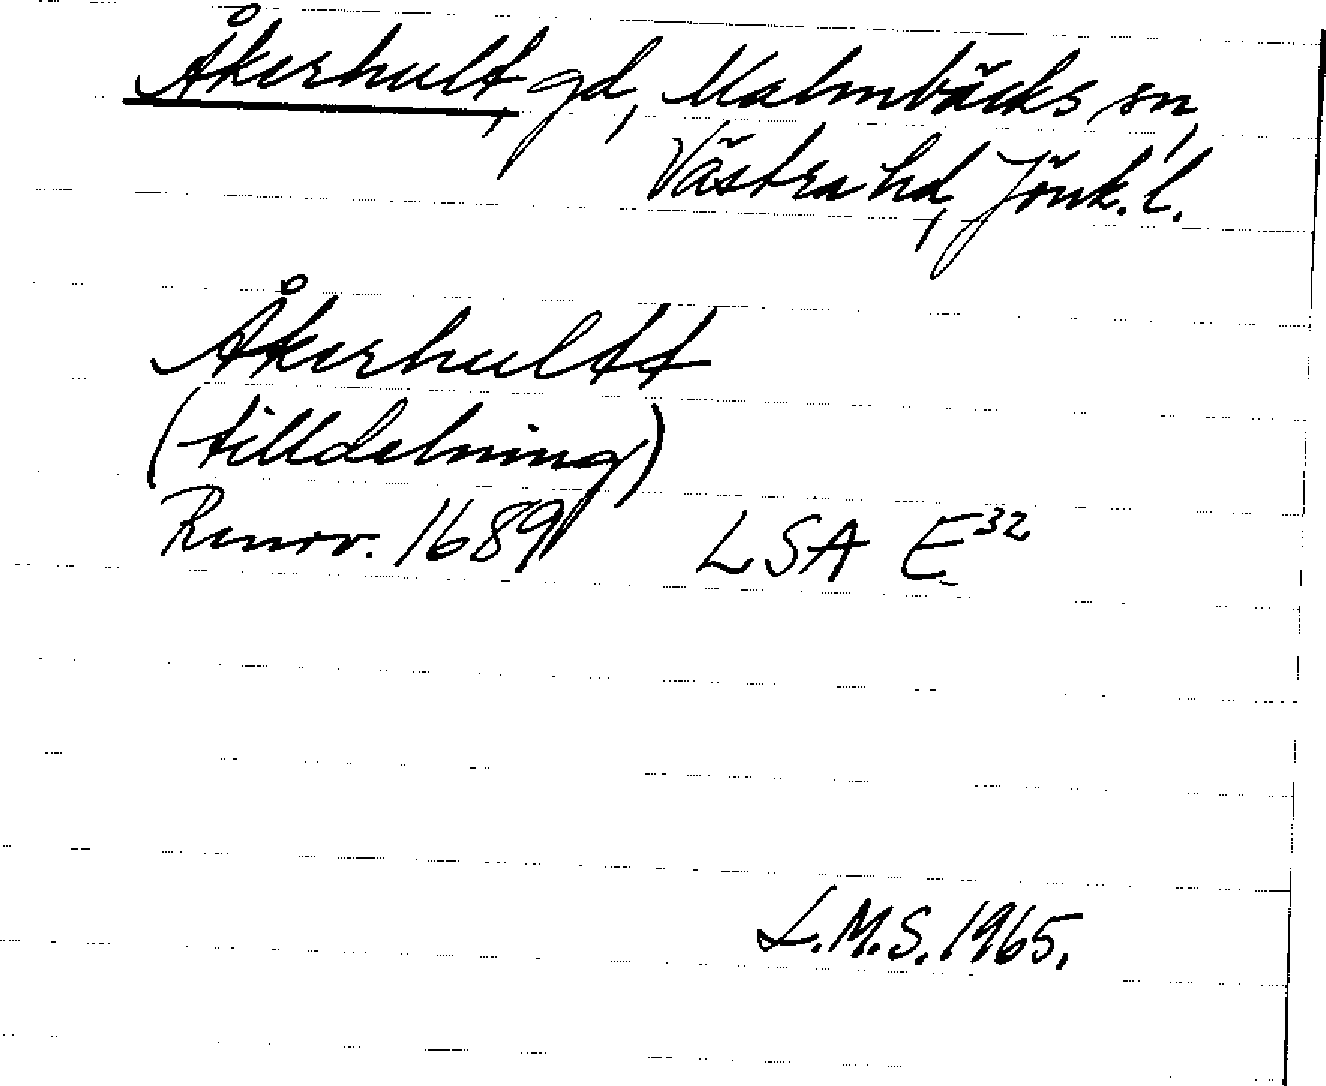 Åkerhult, gd, Malmbäcks sn,
Västra hd, Jönk. l.
Åkerhultt
(tilldelning)
Renov. 1689 LSA E32
L.M.S. 1965.